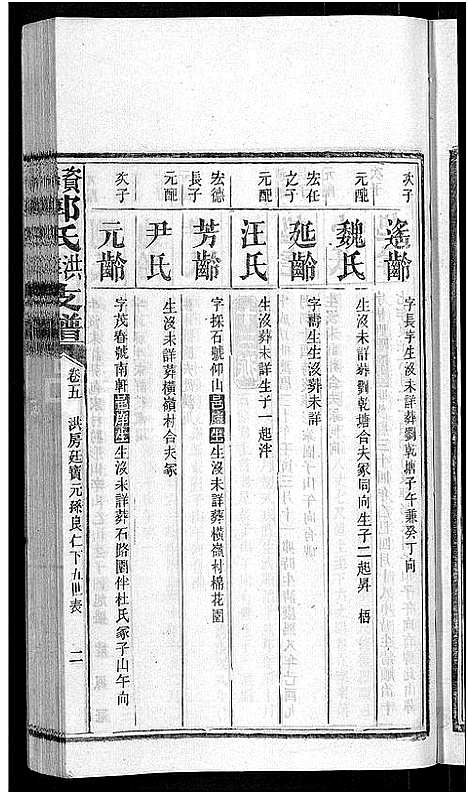 次子
遙齡
字長字生沒未詳葬劉乾塘子午兼癸丁向
元配
魏氏
生沒未詳葬劉乾塘合夫冢同向生子二起昇 梧
宏任之子
延齡
字壽生生沒葬未詳
元配
汪氏
生沒葬未詳生子一起泮
宏德長子
芳齡
字採石號仰山邑庠生生沒未詳葬橫嶺村棉花園
元配
尹氏
生沒未詳葬橫嶺村合夫冢
次子
元齡
字茂春號南軒邑庠生生沒未詳葬石路園伴杜氏冢子山午向
資郭氏洪支譜
卷五 洪房廷寶元孫良仁下九世表 二